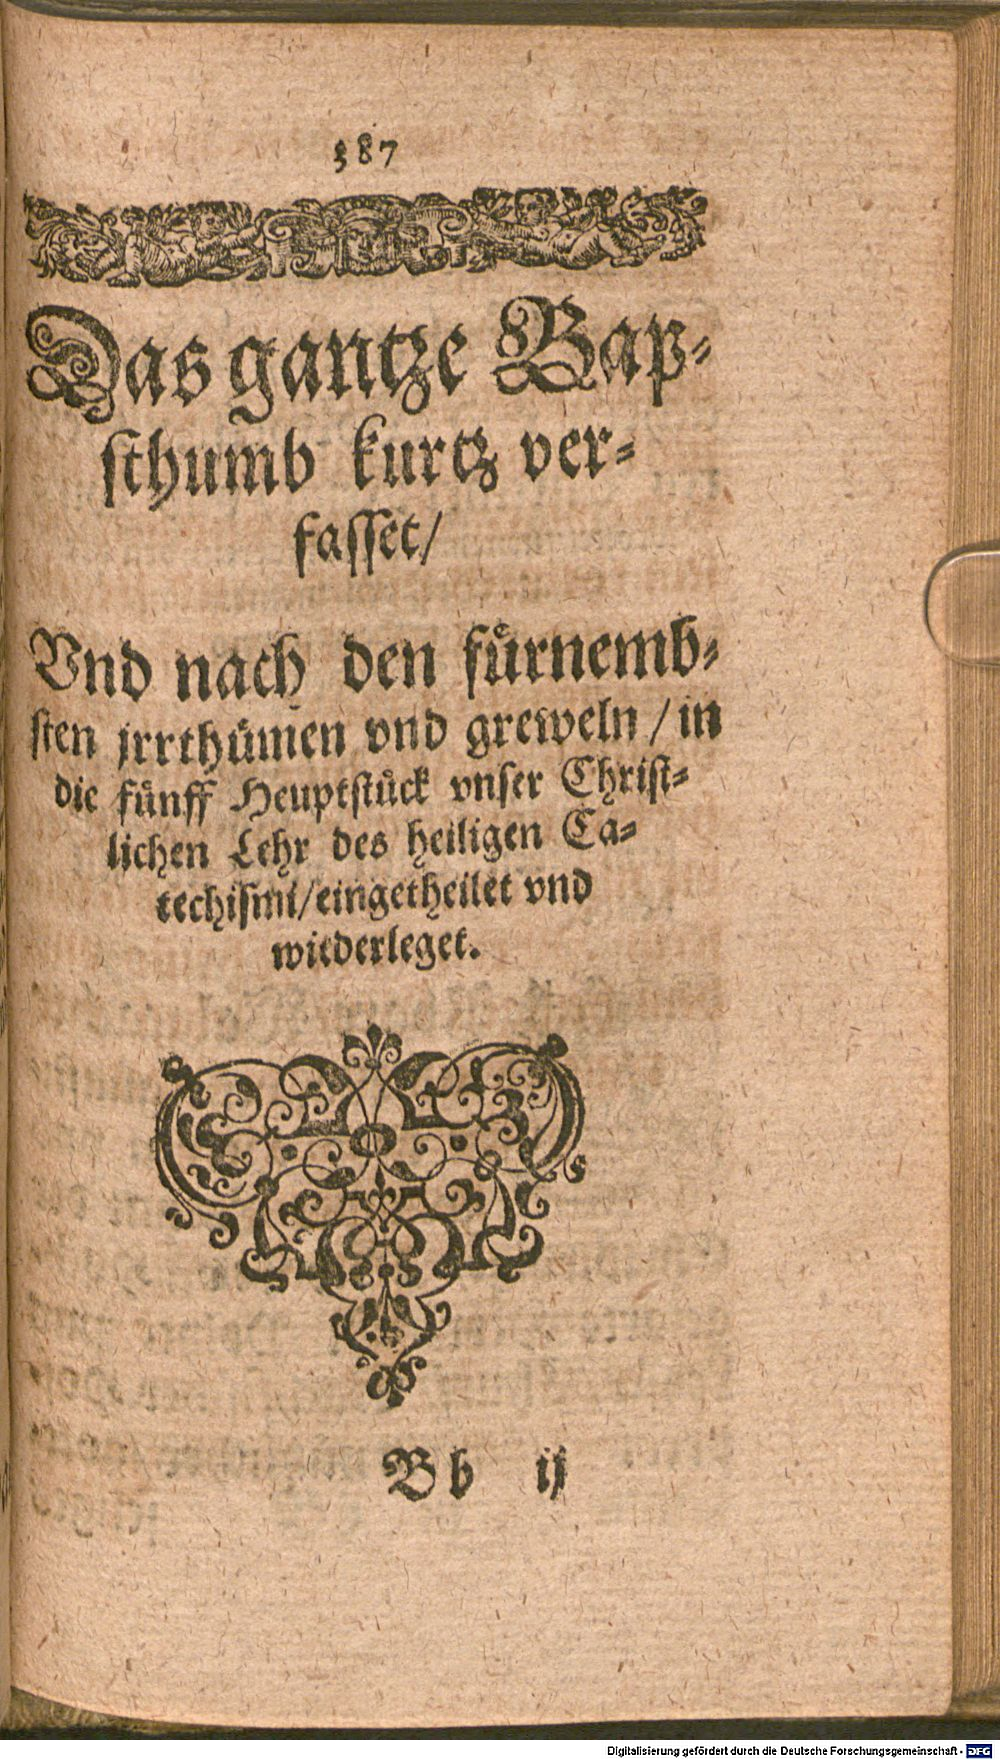 387
Das gantze Bap-
sthumb kurtz ver-
fasset/
Vnd nach den fürnemb-
sten jrrthümen vnd greweln / in
die fünff Heuptstück vnser Christ-
lichen Lehr des heiligen Ca-
techismi/eingetheilet vnd
wiederleget.
B b ij
Digitalisierung gefördert durch die Deutsche Forschungsgemeinschaft - DFG